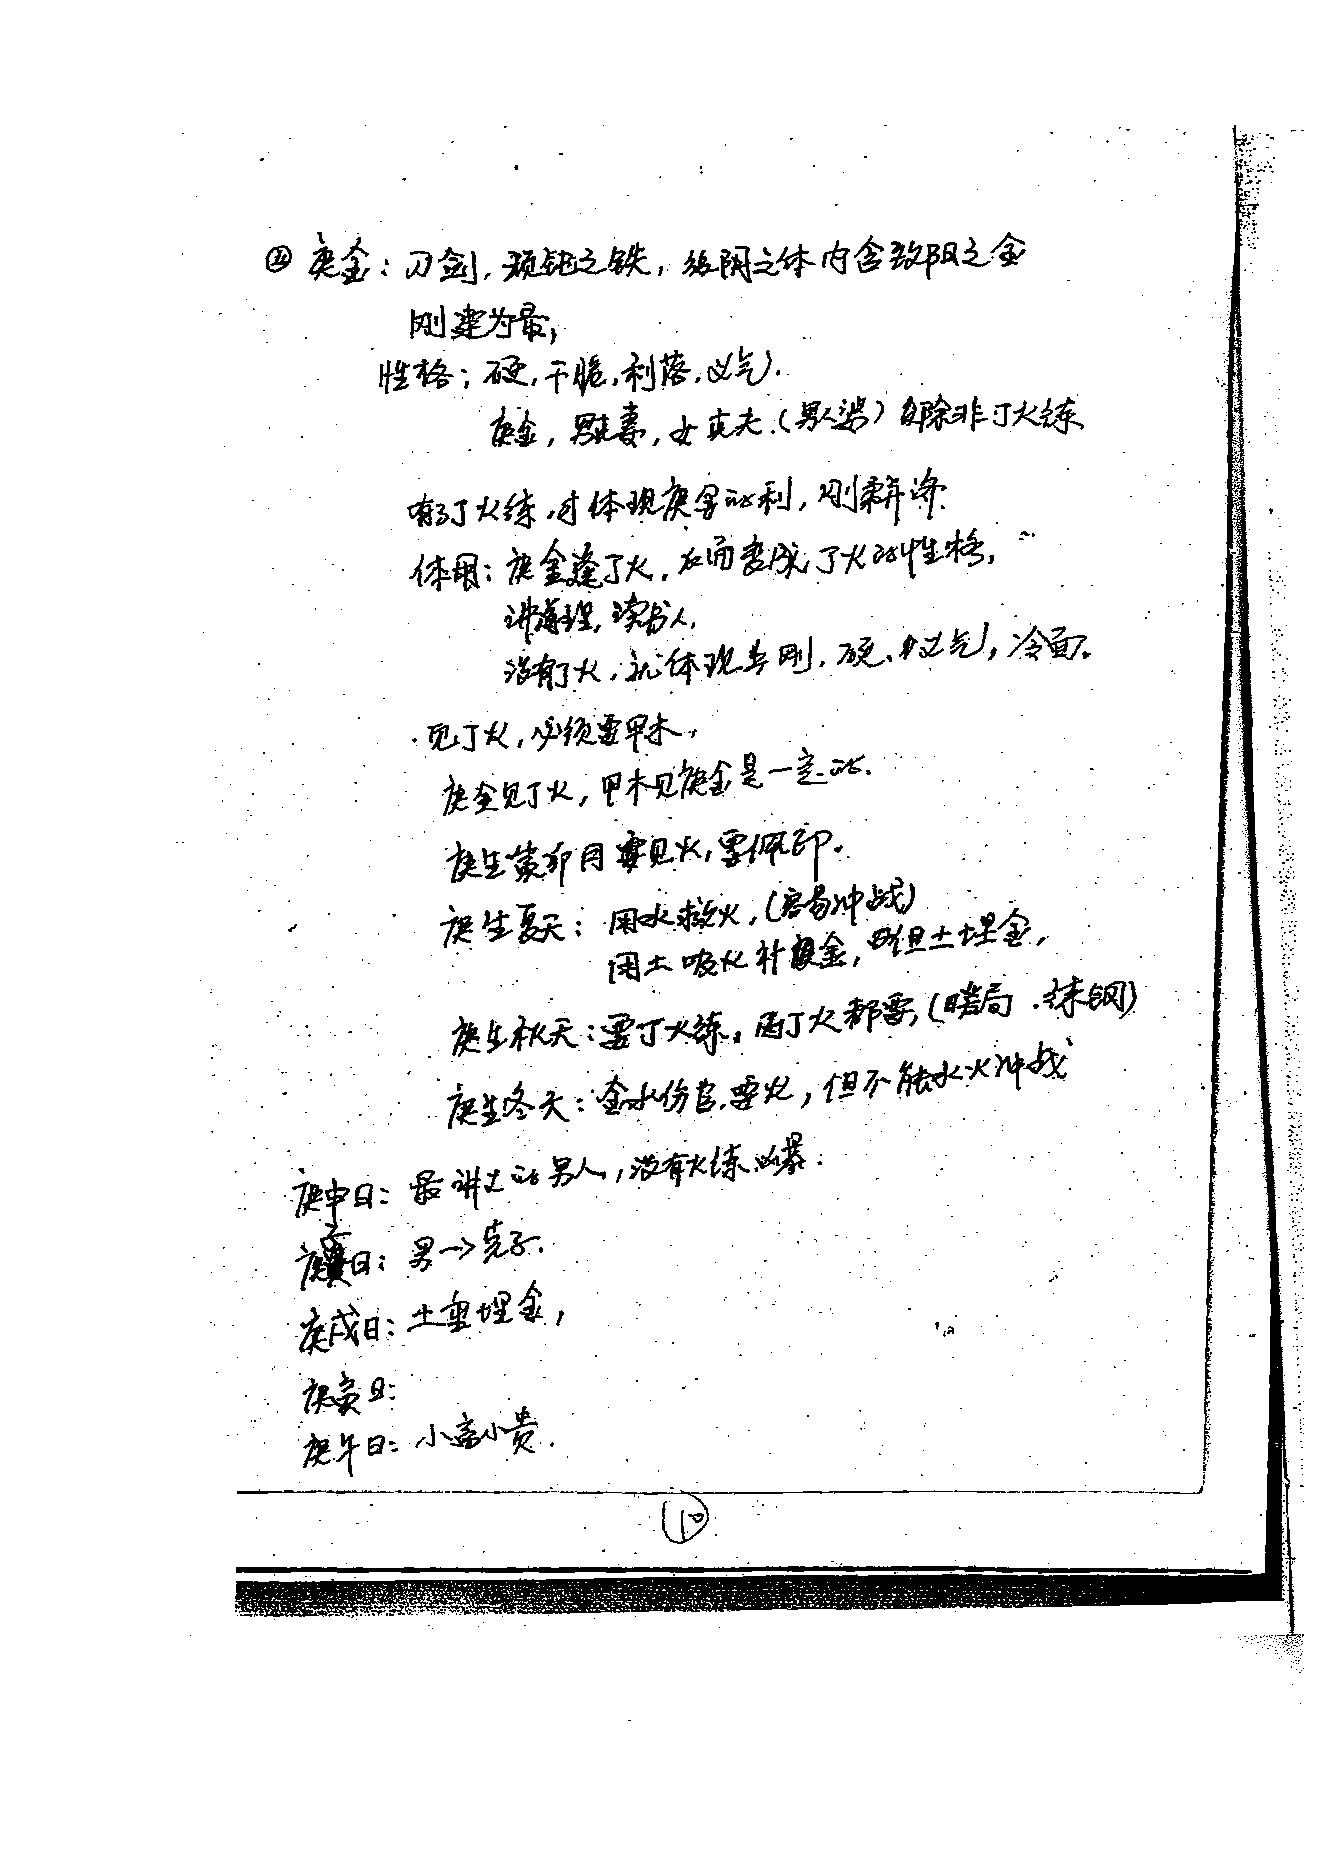 庚金：刀剑，顽钝之铁，纯阴之体内含致阳之金
刚建为最，
性格：硬，干脆，利落，义气).
庚金，男克妻，女克夫.(男人婆) 除非丁火练
有了丁火练，才体现庚金的利，刚柔并济.
体用：庚金逢丁火，反而变成丁火的性格，
讲道理，读书人，
没有丁火，就体现为刚，硬、义气，冷面。
·见丁火，必须要甲木，
庚金见丁火，甲木见庚金是一定的.
庚生寅卯月要见火，要佩印。
庚生夏天：用水救火，(容易冲战)
用土吸火补庚金，但土埋金，
庚生秋天：要丁火练，丙丁火都要，(暗局·炼钢)
庚生冬天：金水伤官.要火，但不能水火冲战
庚申日：最讲义的男人，没有火练凶暴.
庚子日：男→克子.
庚戌日：土重埋金，
庚寅日：
庚午日：小富小贵.
10